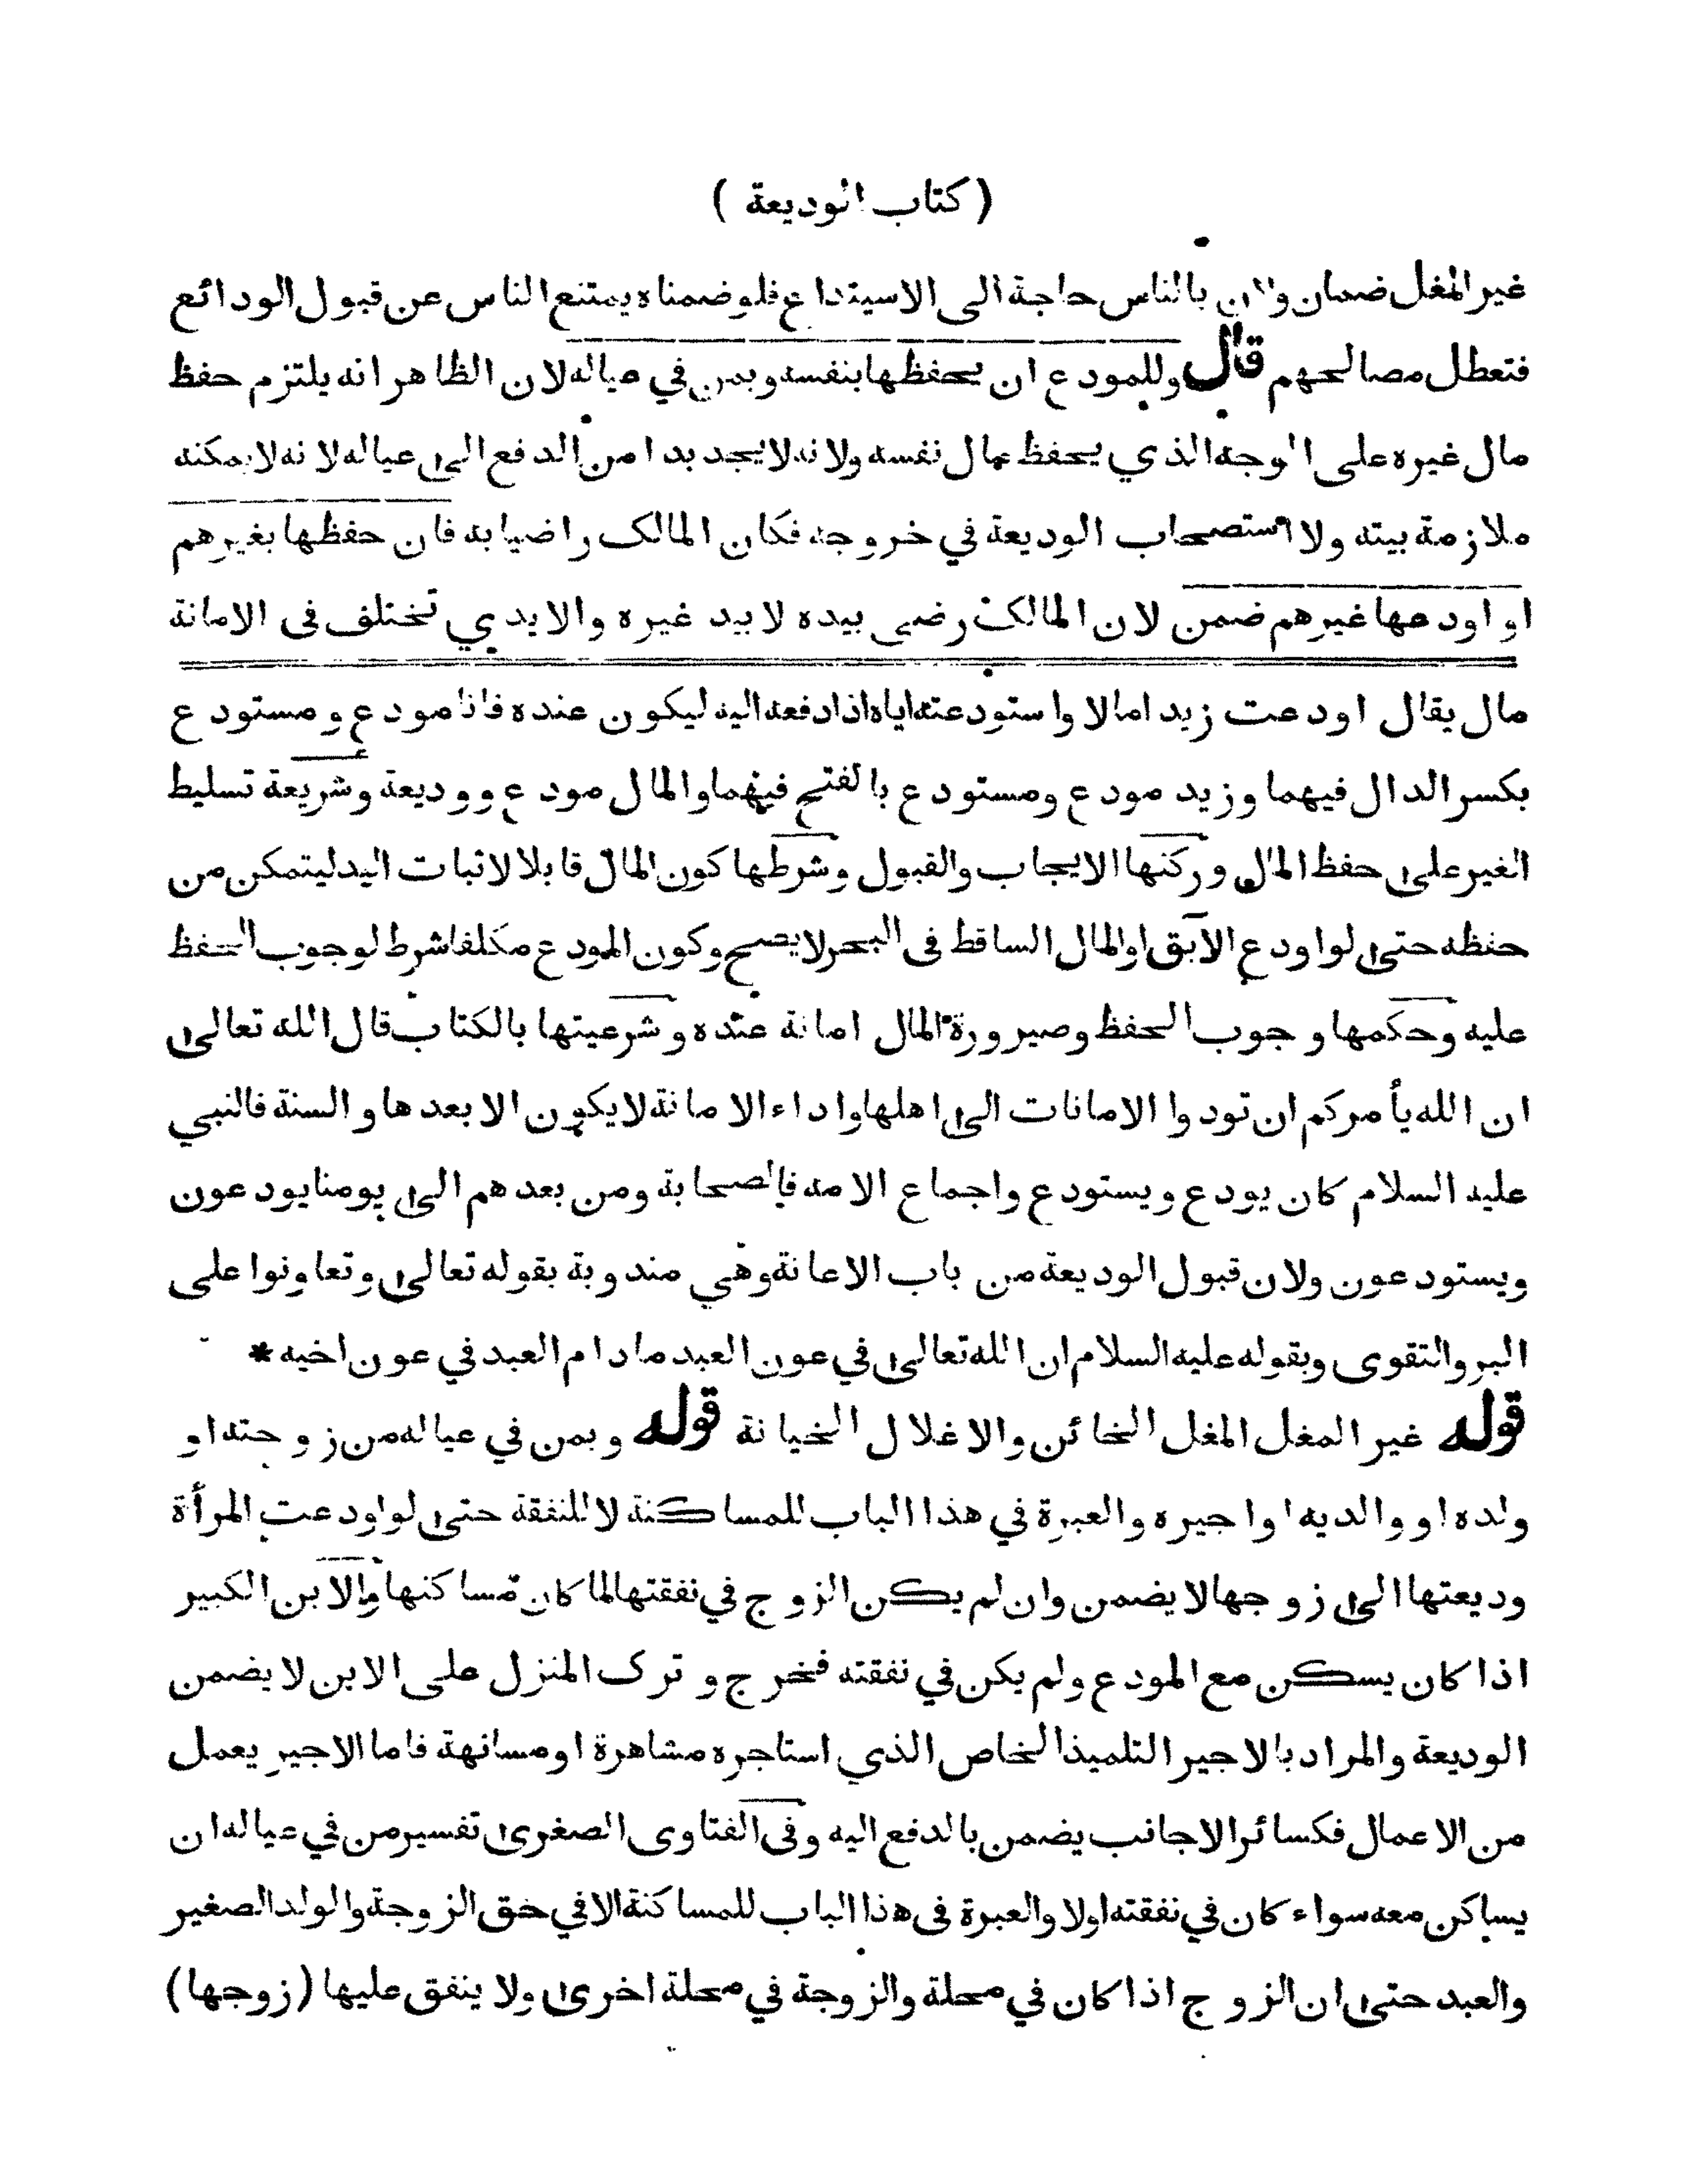 ( كتاب الوديعة )
غير المغل ضمان ولان بالناس حاجة الى الاستيداع فلو ضمناه يمتنع الناس عن قبول الودائع
فتعطل مصالحهم قال وللمودع ان يحفظها بنفسه وبمن في عياله لان الظاهر انه يلتزم حفظ
مال غيره على الوجه الذي يحفظ مال نفسه ولانه لا يجد بدا من الدفع الى عياله لانه لا يمكنه
ملازمة بيته ولا استصحاب الوديعة في خروجه فكان المالك راضيا به فان حفظها بغيرهم
او اودعها غيرهم ضمن لان المالك رضي بيده لا بيد غيره والايدي تختلف في الامانة
مال يقال اودعت زيدا مالا واستودعته اياه اذا دفعه اليه ليكون عنده فانا مودع ومستودع
بكسر الدال فيهما وزيد مودع ومستودع بالفتح فيهما والمال مودع ووديعة وشريعة تسليط
الغير على حفظ المال وركنها الايجاب والقبول وشرطها كون المال قابلا لاثبات اليد ليتمكن من
حفظه حتى لو اودع الآبق او المال الساقط فى البحر لا يصح وكون المودع مكلفا شرط لوجوب الحفظ
عليه وحكمها وجوب الحفظ وصيرورة المال امانة عنده وشرعيتها بالكتاب قال الله تعالى
ان الله يأمركم ان تودوا الامانات الى اهلها واداء الامانة لا يكون الا بعدها والسنة فالنبي
عليه السلام كان يودع ويستودع واجماع الامه فالصحابة ومن بعدهم الى يومنا يودعون
ويستودعون ولان قبول الوديعة من باب الاعانة وهي مندوبة بقوله تعالى وتعاونوا على
البر والتقوى وبقوله عليه السلام ان الله تعالى في عون العبد ما دام العبد في عون اخيه *
قوله غير المغل المغل الخائن والاغلال الخيانة قوله وبمن في عياله من زوجته او
ولده او والديه او اجيره والعبرة في هذا الباب للمساكنة لا للنفقة حتى لو اودعت المرأة
وديعتها الى زوجها لا يضمن وان لم يكن الزوج في نفقتها لما كان مساكنها والابن الكبير
اذا كان يسكن مع المودع ولم يكن في نفقته فخرج وترك المنزل على الابن لا يضمن
الوديعة والمراد بالاجير التلميذ الخاص الذي استاجره مشاهرة او مسانهة فاما الاجير يعمل
من الاعمال فكسائر الاجانب يضمن بالدفع اليه وفى الفتاوى الصغرى تفسير من في عياله ان
يساكن معه سواء كان في نفقته اولا والعبرة فى هذا الباب للمساكنة الا في حق الزوجة والولد الصغير
والعبد حتى ان الزوج اذا كان في محلة والزوجة في محلة اخرى ولا ينفق عليها (زوجها)